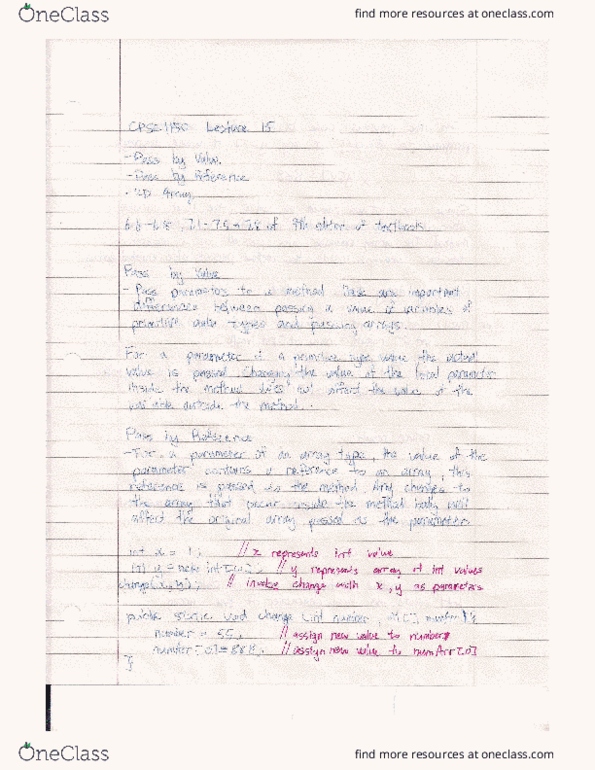 OneClass
find more resources at oneclass.com
CPSC 1150 Lecture 15
- Pass by Value
- Pass by Reference
- 2D Array
of 9th of textbook
Pass by Value
- Pass parameters to a method. There are important
differences between passing a value of variables of
primitive data types and passing arrays.
For a parameter of a primitive type value the actual
value is passed. Changing the value of the local parameter
inside the method does not affect the value of the
variable outside the method.
Pass by Reference
- For a parameter of an array type, the value of the
parameter contains a reference to an array, this
reference is passed to the method. Any changes to
the array that occur inside the method body will
affect the original array passed as the parameter
int x = 1; // x represents int value
// y represents array of int values
change(x, y); // invoke change with x, y as parameters
public static void change (int number, int[] number){
number = 55; // assign new value to number
number[0]=888; // assign new value to numArr[0]
}
OneClass
find more resources at oneclass.com